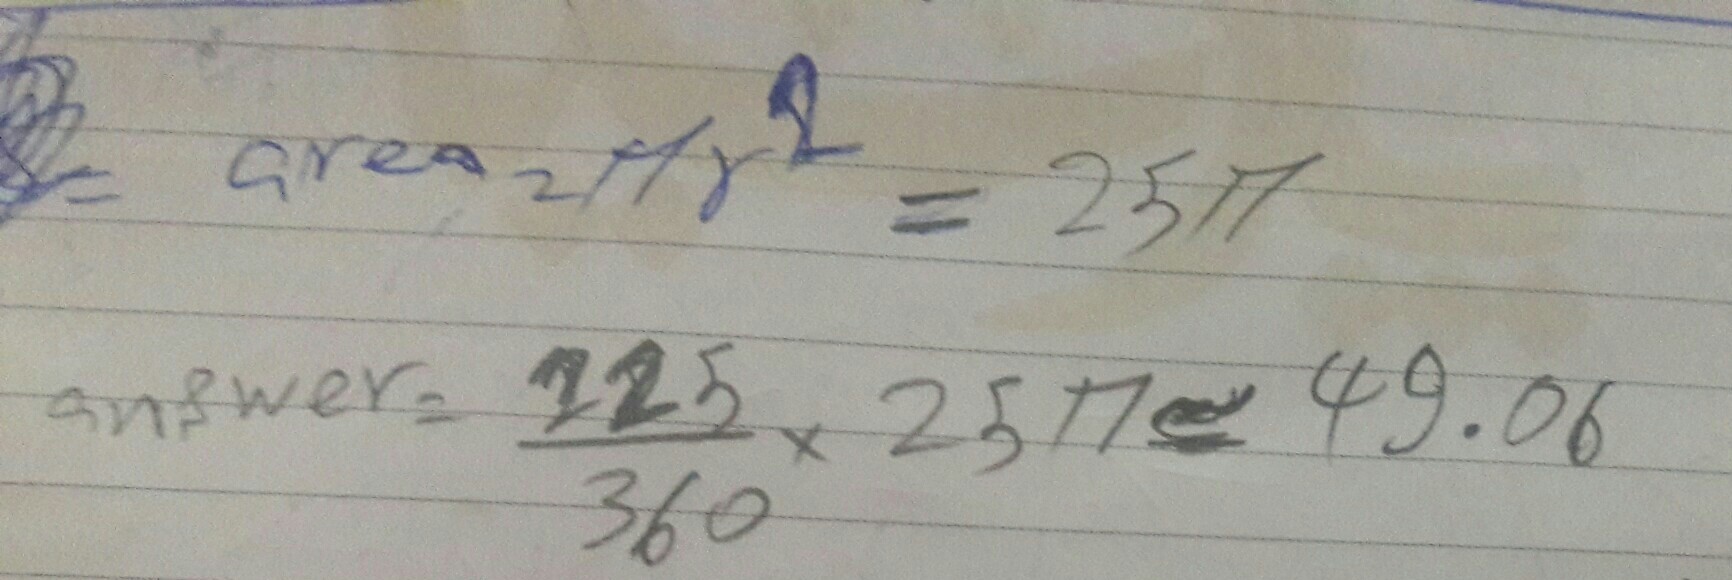 = area = πr² = 25π
answer = 225/360 × 25π ≃ 49.06